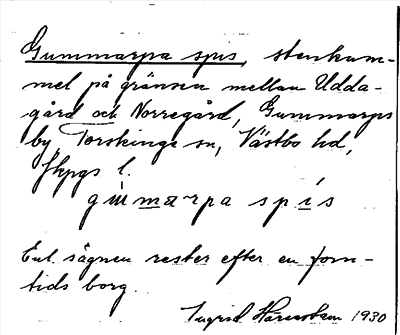 Gummarpa spis, stenkum-
mel på gränsen mellan Udda-
gård och Norregård, Gummarps
by, Torskinge sn, Västbo hd,
Jkpgs l.
gùmarpa spís
Enl. sägnen rester efter en forn-
tids borg.
Ingrid 1930